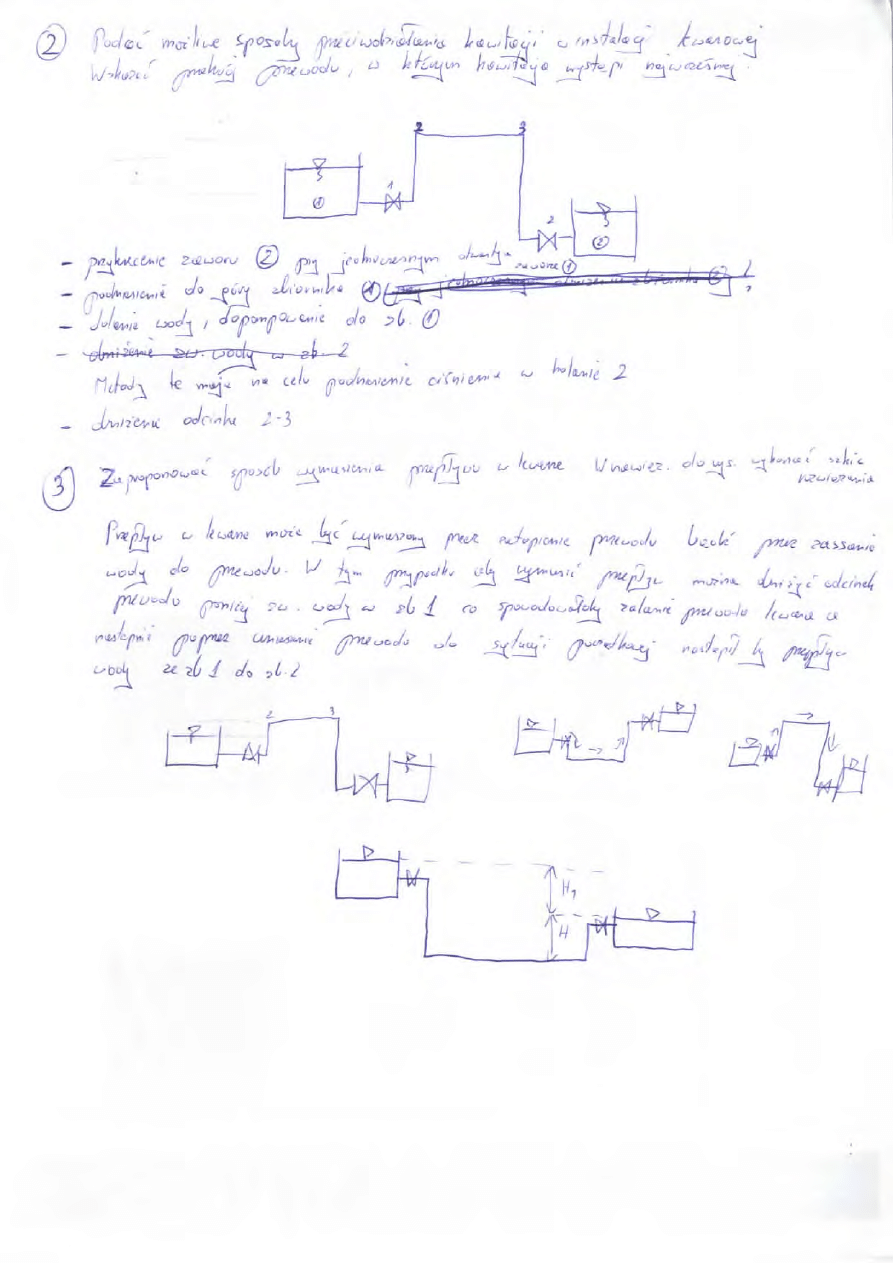 ② Podać możliwe sposoby przeciwdziałania kawitacji w instalacji lewarowej
Wskazać przekrój przewodu, w którym kawitacja wystąpi najwcześniej.
2 3
1
①
2
②
- przykręcenie zaworu ② przy jednoczesnym otwarciu
zaworu ①
- podniesienie do góry zbiornika ①
- dolanie wody, dopompowanie do zb. ①
- obniżenie zw. wody w zb. 2
Metody te mają na celu podniesienie ciśnienia w kolanie 2
- obniżenie odcinka 2-3
③ Zaproponować sposób wymuszenia przepływu w lewarze W nawiąz. do rys. wykonać szkic
rozwiązania
Przepływ w lewarze może być wymuszony przez zatopienie przewodu bądź przez zassanie
wody do przewodu. W tym przypadku aby wymusić przepływ można obniżyć odcinek
przewodu poniżej zw. wody w zb 1 co spowodowałoby zalanie przewodu lewara a
następnie poprzez uniesienie przewodu do sytuacji początkowej nastąpił by przepływ
wody ze zb 1 do zb. 2
2 3
H1
H